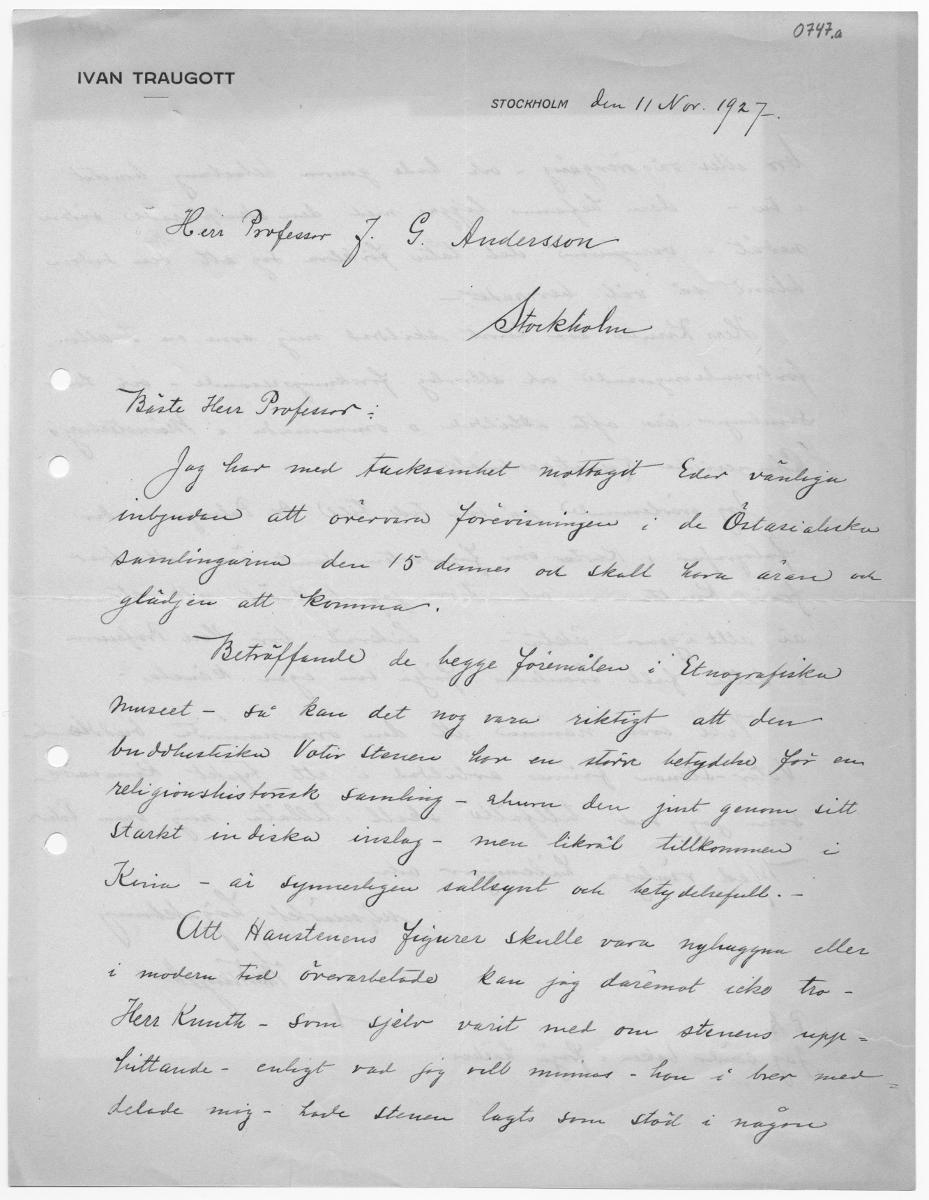 0747.a
IVAN TRAUGOTT
STOCKHOLM den 11 Nov. 1927.
Herr Professor J. G. Andersson
Stockholm
Bäste Herr Professor:
Jag har med tacksamhet mottagit Eder vänliga
inbjudan att övervara förevisningen i de Östasiatiska
samlingarna den 15 dennes och skall hava äran och
glädjen att komma.
Beträffande de begge föremålen i Etnografiska
Museet – så kan det nog vara riktigt att den
buddhistiska Votiv stenen har en större betydelse för en
religionshistorisk samling – ehuru den just genom sitt
starkt indiska inslag – men likväl tillkommen i
Kina – är synnerligen sällsynt och betydelsefull. –
Att Hanstenens figurer skulle vara nyhuggna eller
i modern tid överarbetade kan jag däremot icke tro –
Herr Knuth – som själv varit med om stenens upp=
hittande – enligt vad jag vill minnas – han i brev med=
delade mig – hade stenen lagts som stöd i någon